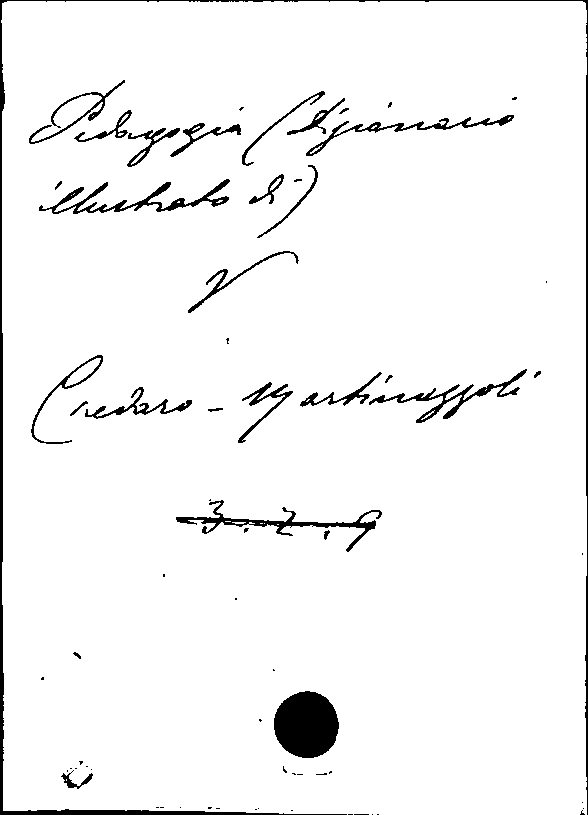 Pedagogia (Dizionario
illustrato di)
V
Credaro - Martinazzoli
3.2.9